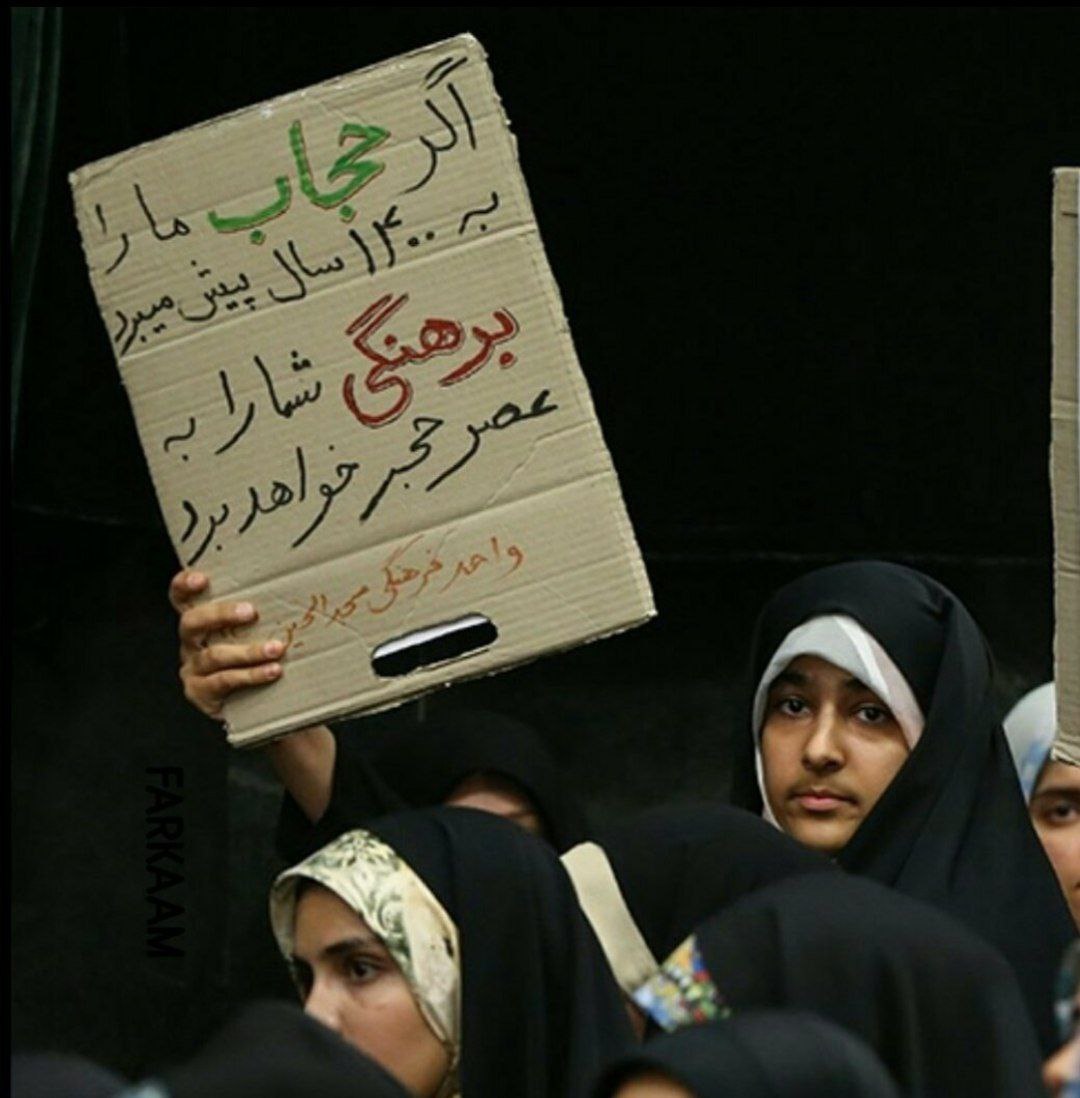 اگر حجاب ما را
به ۱۴۰۰ سال پیش میبرد
برهنگی شما را به
عصر حجر خواهد برد
واحد فرهنگی
FARKAAM